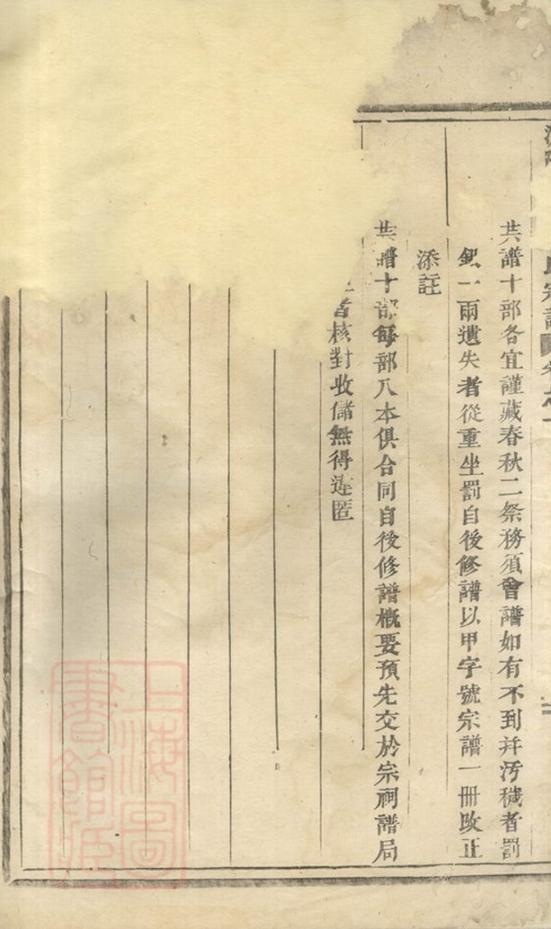 氏宗譜
共譜十部各宜謹藏春秋二祭務須會譜如有不到并污穢者罰
銀一兩遺失者從重坐罰自後修譜以甲字號宗譜一冊改正
添註
共譜十部每部八本俱合同自後修譜概要預先交於宗祠譜局
者核對收儲無得遲匿
上海圖書館藏